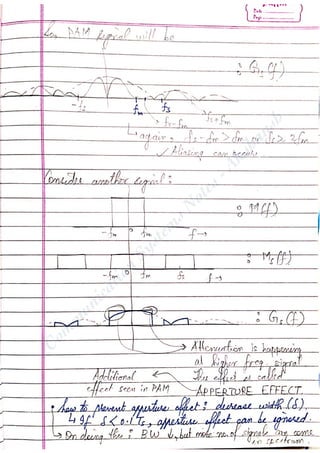 Date
Page
So, PAM signal will be
: Gs(f)
-fs fm fs
fs-fm fs+fm
again - fs-fm > fm or fs ≥ 2fm
✓ Aliasing can occur.
Consider another signal :
: M(f)
-fm 0 fm f→
: Ms(f)
-fm 0 fm fs f→
: Gs(f)
→ Attenuation is happening
at higher freq. signal
Additional ← This effect is called
effect seen in PAM APPERTURE EFFECT.
• how to prevent apperture effect : decrease width (S).
↳ If S < 0.1 Ts, apperture effect can be ignored.
↳ On doing this : BW ↓, but more no of signals in same
spectrum.